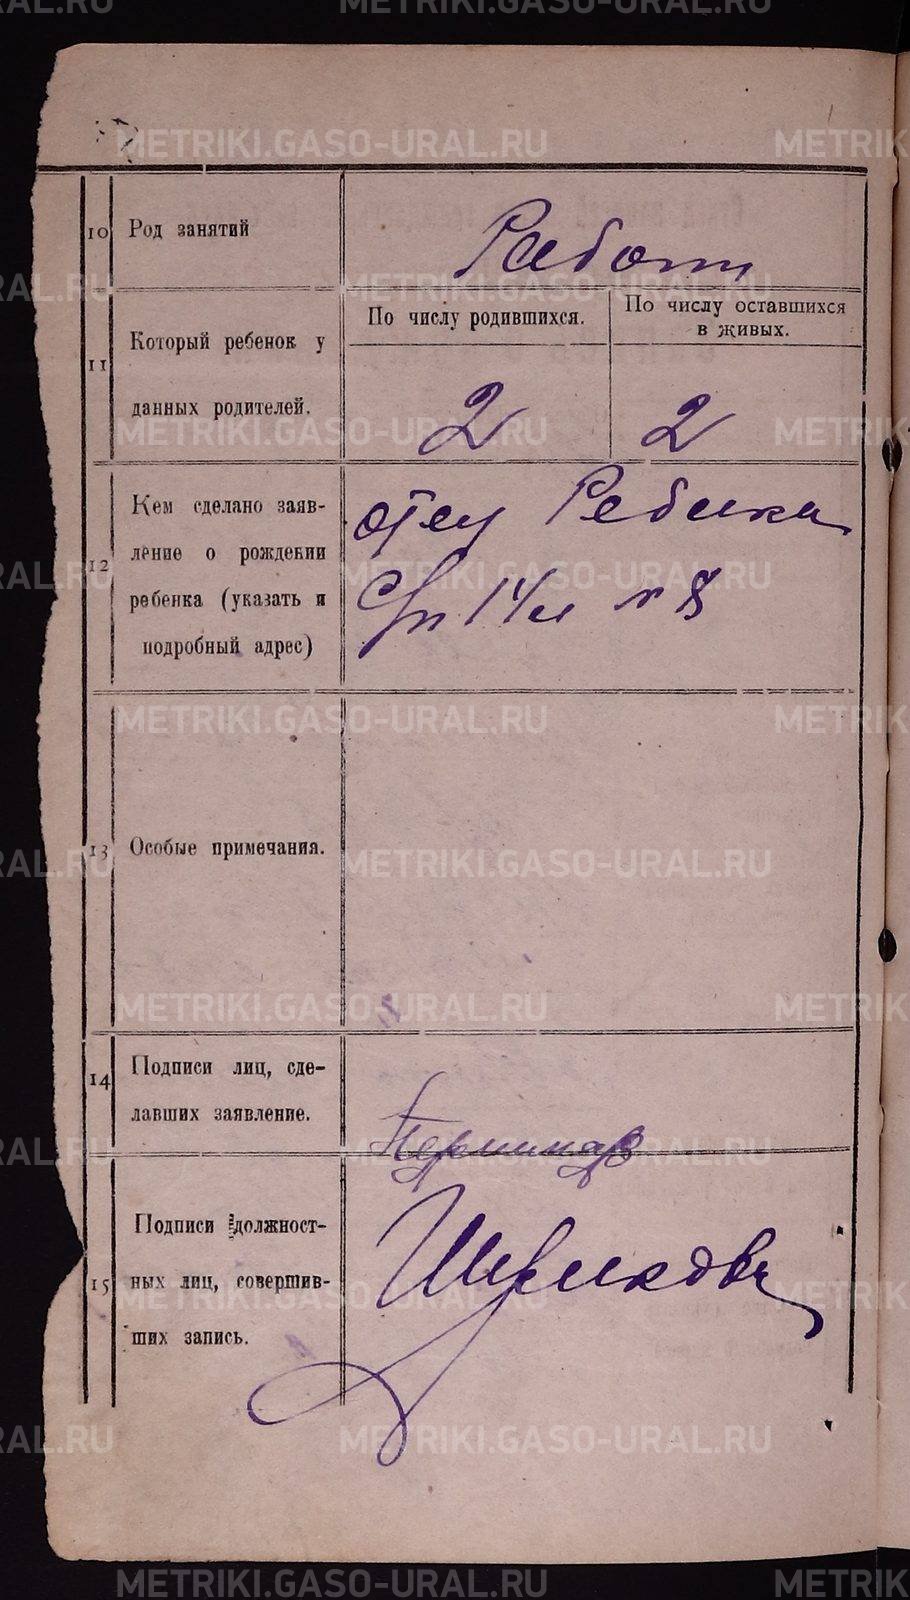 10 Род занятий
Работн
11 Который ребенок у
данных родителей.
По числу родившихся.
По числу оставшихся
в живых.
2
2
12 Кем сделано заяв-
ление о рождении
ребенка (указать и
подробный адрес)
отец Ребенка
14 8
13 Особые примечания.
14 Подписи лиц, сде-
лавших заявление.
15 Подписи должност-
ных лиц, совершив-
ших запись.
METRIKI.GASO-URAL.RU